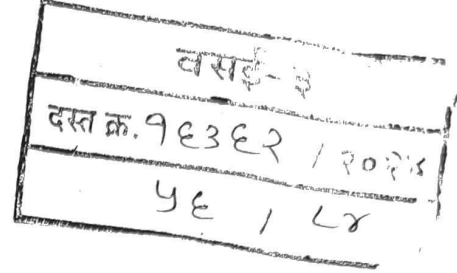 वसई-३
दस्त क्र. १६३६२ / २०२४
५६ / ८४